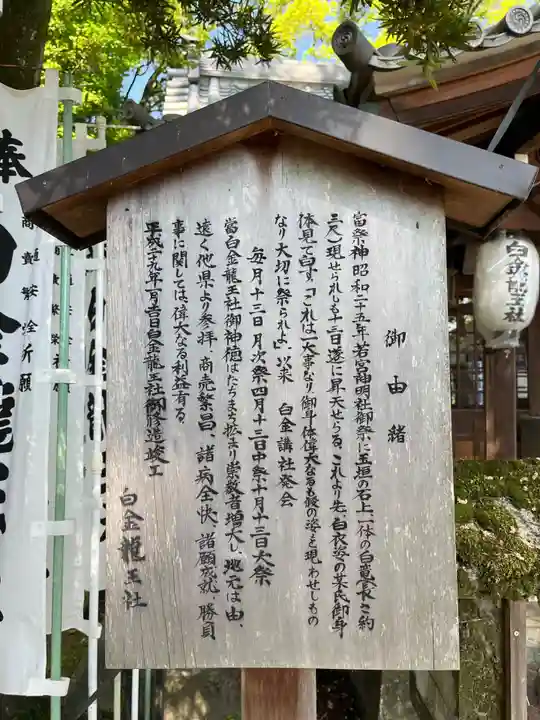 御由緒
當祭神昭和二十五年若宮神明社御祭に玉垣の石上一体の白竜(長さ約
三尺)現せられしも十三日遂に昇天せらる、これより先、白衣姿の某氏御身
体見て白す「これは一大事なり御身体偉大なるも仮の姿を現わせしもの
なり大切に祭られよ」以来 白金講社発会
毎月十三日月次祭四月十三日中祭十月十三日大祭
當白金龍王社御神徳はたちまち拡まり崇敬者増大し、地元は由、
遠く他県より参拝 商売繁昌、諸病全快、諸願成就、勝負
事に関しては、偉大なる利益有る、
平成二十九年一月吉日白金龍王社御修造竣工
白金龍王社
白金龍王社
奉
商売繁盛
安全祈願